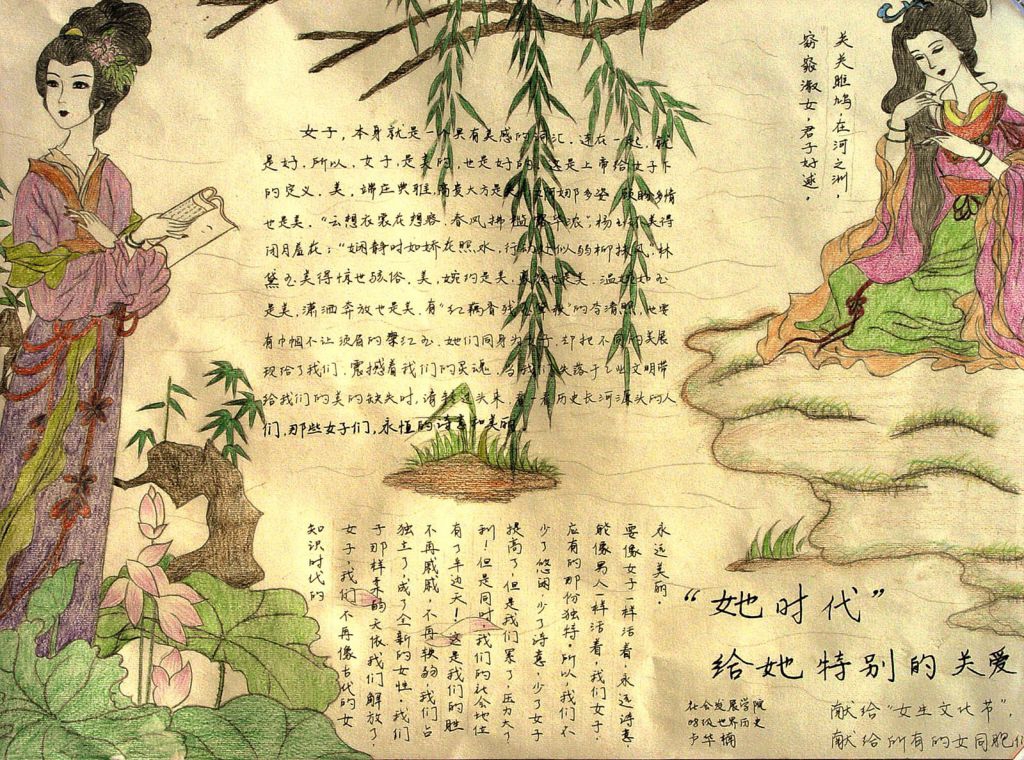 关关雎鸠，在河之洲，
窈窕淑女，君子好逑，
女子，本身就是一个具有美感的词汇，连在一起，就
是好，所以，女子是美的，也是好的，这是上帝给女子下
的定义，美，端庄典雅，高贵大方是美，婀娜多姿，顾盼多情
也是美，“云想衣裳花想容，春风拂槛露华浓”，杨美得
闭月羞花；“娴静时如娇花照水，行动处似弱柳扶风”，林
黛玉美得惊世骇俗，美，婉约是美，也是美，温婉如玉
是美，潇洒奔放也是美，有“红藕香残玉簟秋”的李清照，也要
有巾帼不让须眉的梁红玉，她们同身为女子，却把不同的美展
现给了我们，震撼着我们的灵魂，当我们失落于工业文明带
给我们的美的缺失时，请转过头来，看一看历史长河源头的人
们，那些女子们，永恒的诗意和美丽。
知识时代的
女子，我们不再像古代的女
子那样柔的天依我们解放了，
独立了，成了全新的女性，我们
不再戚戚，不再软弱，我们占
有了半边天！这是我们的胜
利！但是同时，我们的社会地位
提高了，但是我们累了，压力大了，
少了悠闲，少了诗意，少了女子
应有的那份独特，所以，我们不
能像男人一样活着，我们女子，
要像女子一样活着，永远诗意，
永远美丽。
“她时代”
给她特别的关爱
社会发展学院
08级世界历史
卢华楠
献给“女生文化节”，
献给所有的女同胞们